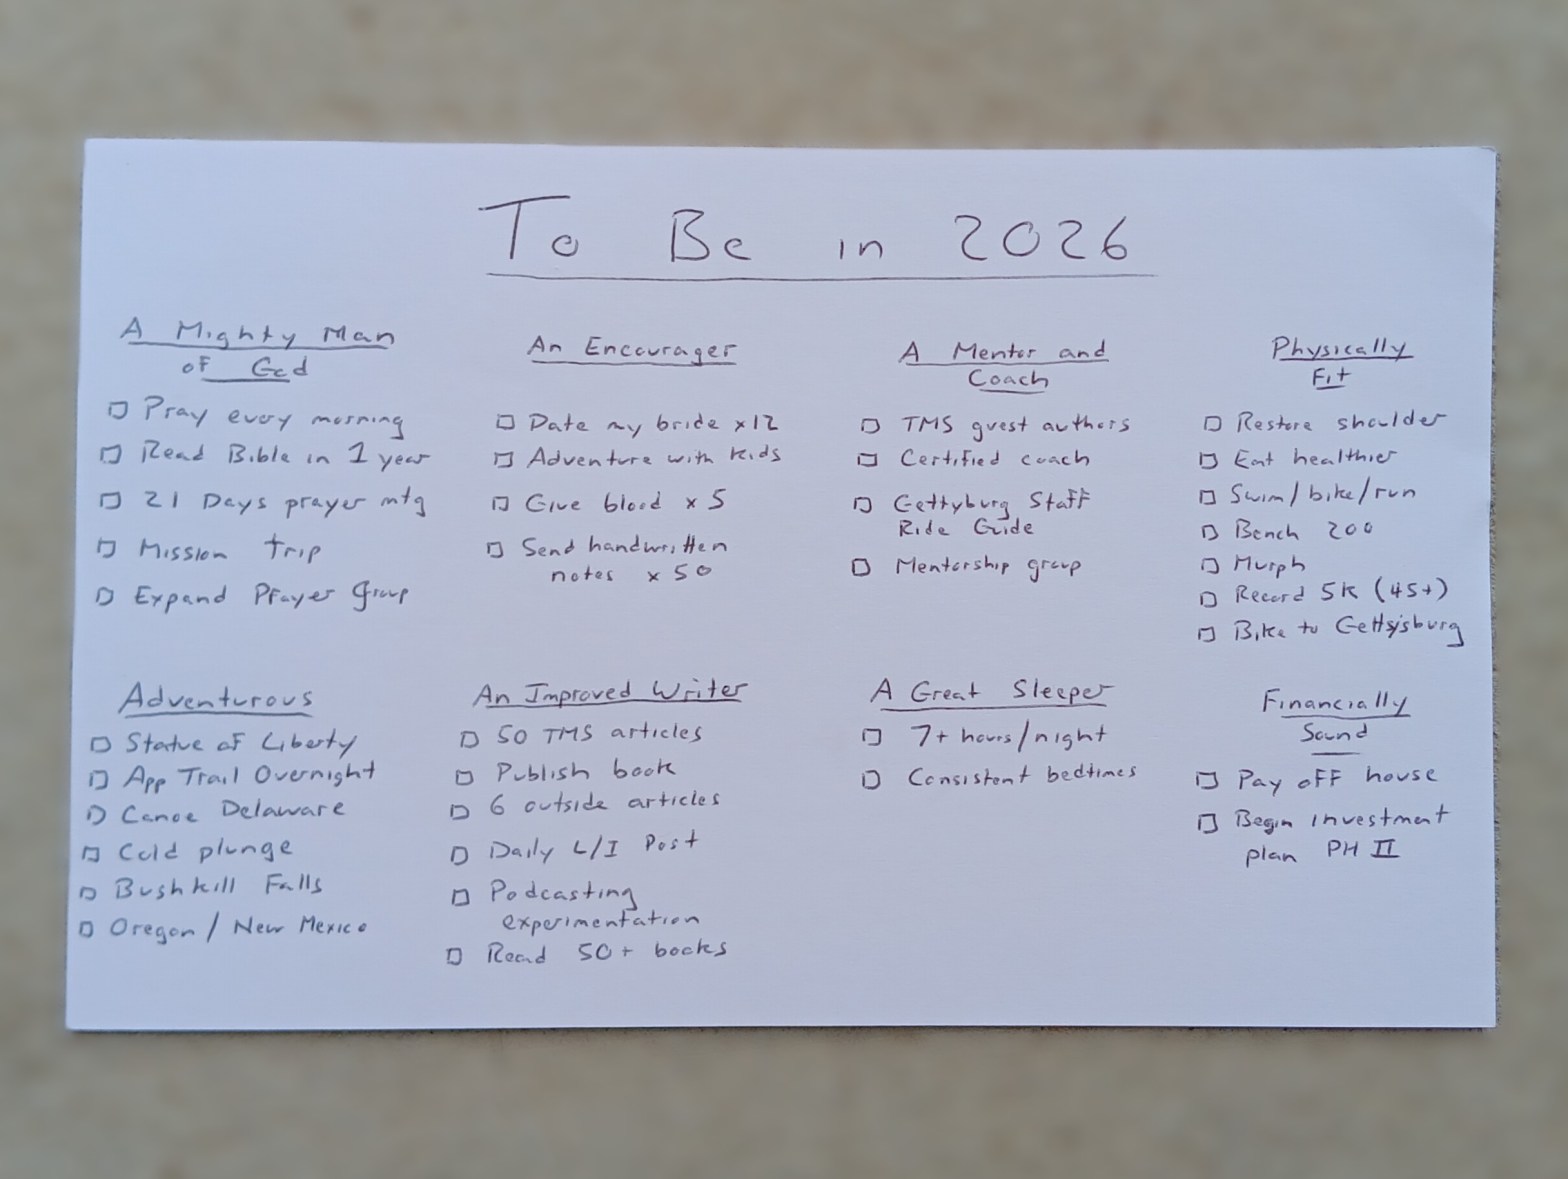 To Be in 2026
A Mighty Man
of God
Pray every morning
Read Bible in 1 year
21 Days prayer mtg
Mission trip
Expand Prayer group
An Encourager
Date my bride x12
Adventure with kids
Give blood x 5
Send handwritten
notes x 50
A Mentor and
Coach
TMS guest authors
Certified coach
Gettyburg Staff
Ride Guide
Mentorship group
Physically
Fit
Restore shoulder
Eat healthier
Swim/bike/run
Bench 200
Murph
Record 5K (45+)
Bike to Gettysburg
Adventurous
Statue of Liberty
App Trail Overnight
Canoe Delaware
Cold plunge
Bushkill Falls
Oregon / New Mexico
An Improved Writer
50 TMS articles
Publish book
6 outside articles
Daily L/I Post
Podcasting
experimentation
Read 50+ books
A Great Sleeper
7+ hours/night
Consistent bedtimes
Financially
Sound
Pay off house
Begin investment
plan PH II